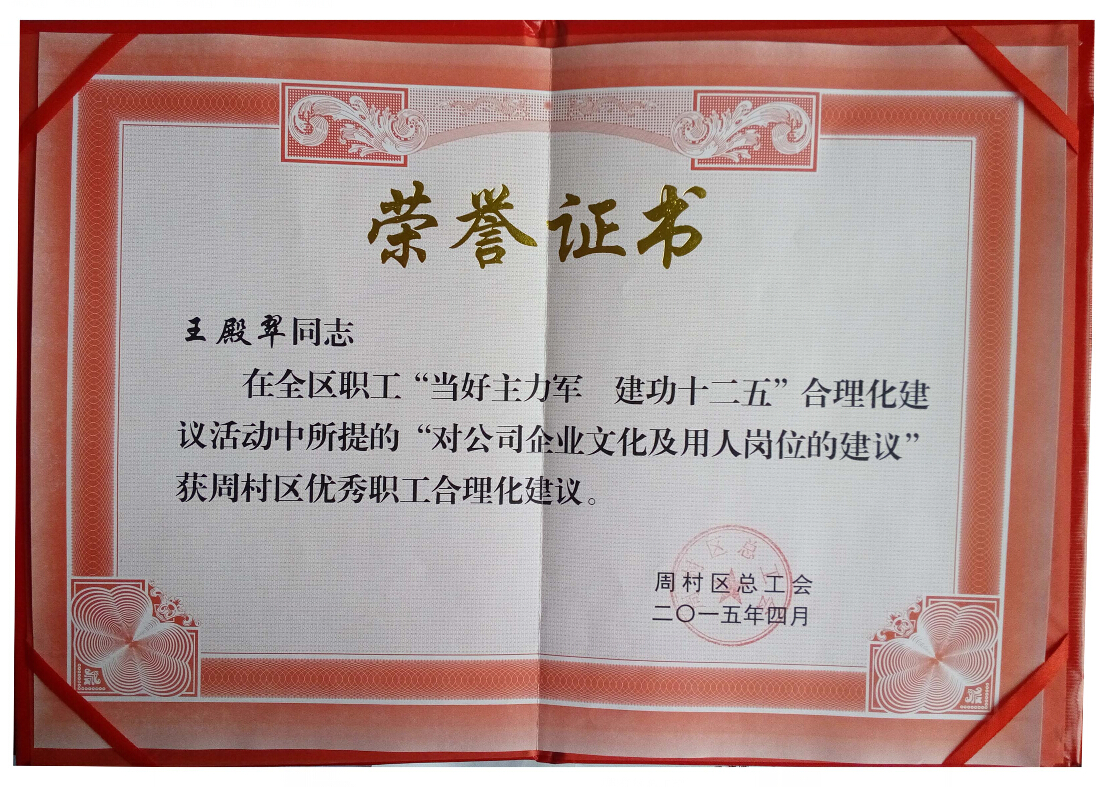 荣誉证书
王殿翠同志
在全区职工“当好主力军 建功十二五”合理化建
议活动中所提的“对公司企业文化及用人岗位的建议”
获周村区优秀职工合理化建议。
周村区总工会
二〇一五年四月